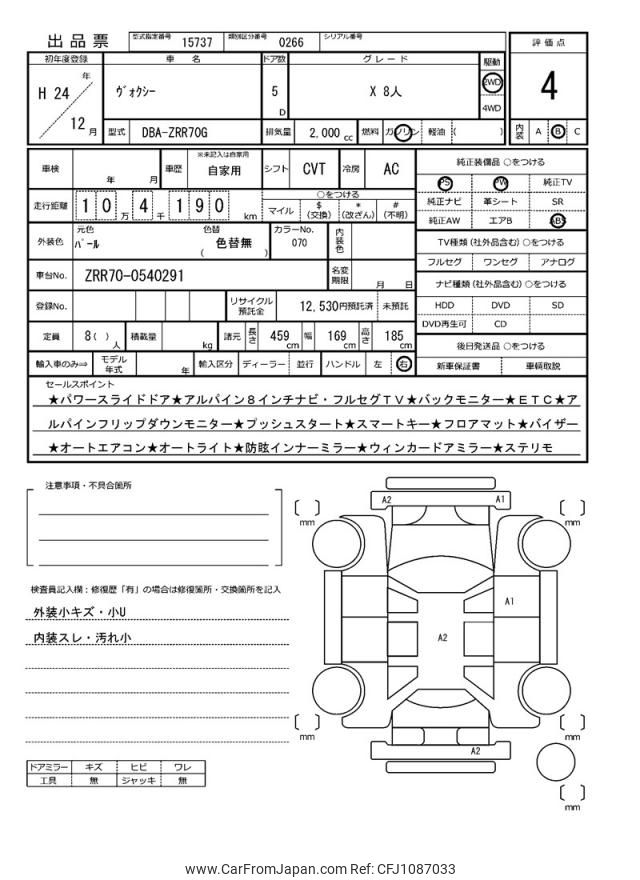 出品票 型式指定番号 15737 類別区分番号 0266 シリアル番号
評価点
4
内装 A B C
初年度登録 車名 ドア数 グレード 駆動
年
H 24
12 月
ヴォクシー 5 D X 8人 2WD
4WD
型式 DBA-ZRR70G 排気量 2,000 cc 燃料 ガソリン 軽油 ( )
車検 年 月 車歴 ※未記入は自家用
自家用 シフト CVT 冷房 AC
走行距離 1 0 万 4 千 1 9 0 km
○をつける
マイル $ (交換) * (改ざん) # (不明)
外装色 元色 色替
パール 色替無
( )
カラーNo.
070
内装色
車台No. ZRR70-0540291 名変期限 月 日
登録No. リサイクル預託金 12,530円預託済 未預託
定員 8( ) 人 積載量 kg 諸元 長さ 459 cm 幅 169 cm 高さ 185 cm
輸入車のみ⇒ モデル年式 年 輸入区分 ディーラー 並行 ハンドル 左 右
純正装備品 ○をつける
PS PW 純正TV
純正ナビ 革シート SR
純正AW エアB ABS
TV種類(社外品含む)○をつける
フルセグ ワンセグ アナログ
ナビ種類(社外品含む)○をつける
HDD DVD SD
DVD再生可 CD
後日発送品 ○をつける
新車保証書 車輌取説
セールスポイント
★パワースライドドア★アルパイン8インチナビ・フルセグTV★バックモニター★ETC★ア
ルパインフリップダウンモニター★プッシュスタート★スマートキー★フロアマット★バイザー
★オートエアコン★オートライト★防眩インナーミラー★ウィンカードアミラー★ステリモ
注意事項・不具合箇所
検査員記入欄:修復歴「有」の場合は修復箇所・交換箇所を記入
外装小キズ・小U
内装スレ・汚れ小
ドアミラー キズ ヒビ ワレ
工具 無 ジャッキ 無
A2 A1
[ ] mm
[ ] mm
A1
A2
[ ] mm
[ ] mm
A2
[ ] mm
www.CarFromJapan.com Ref: CFJ1087033